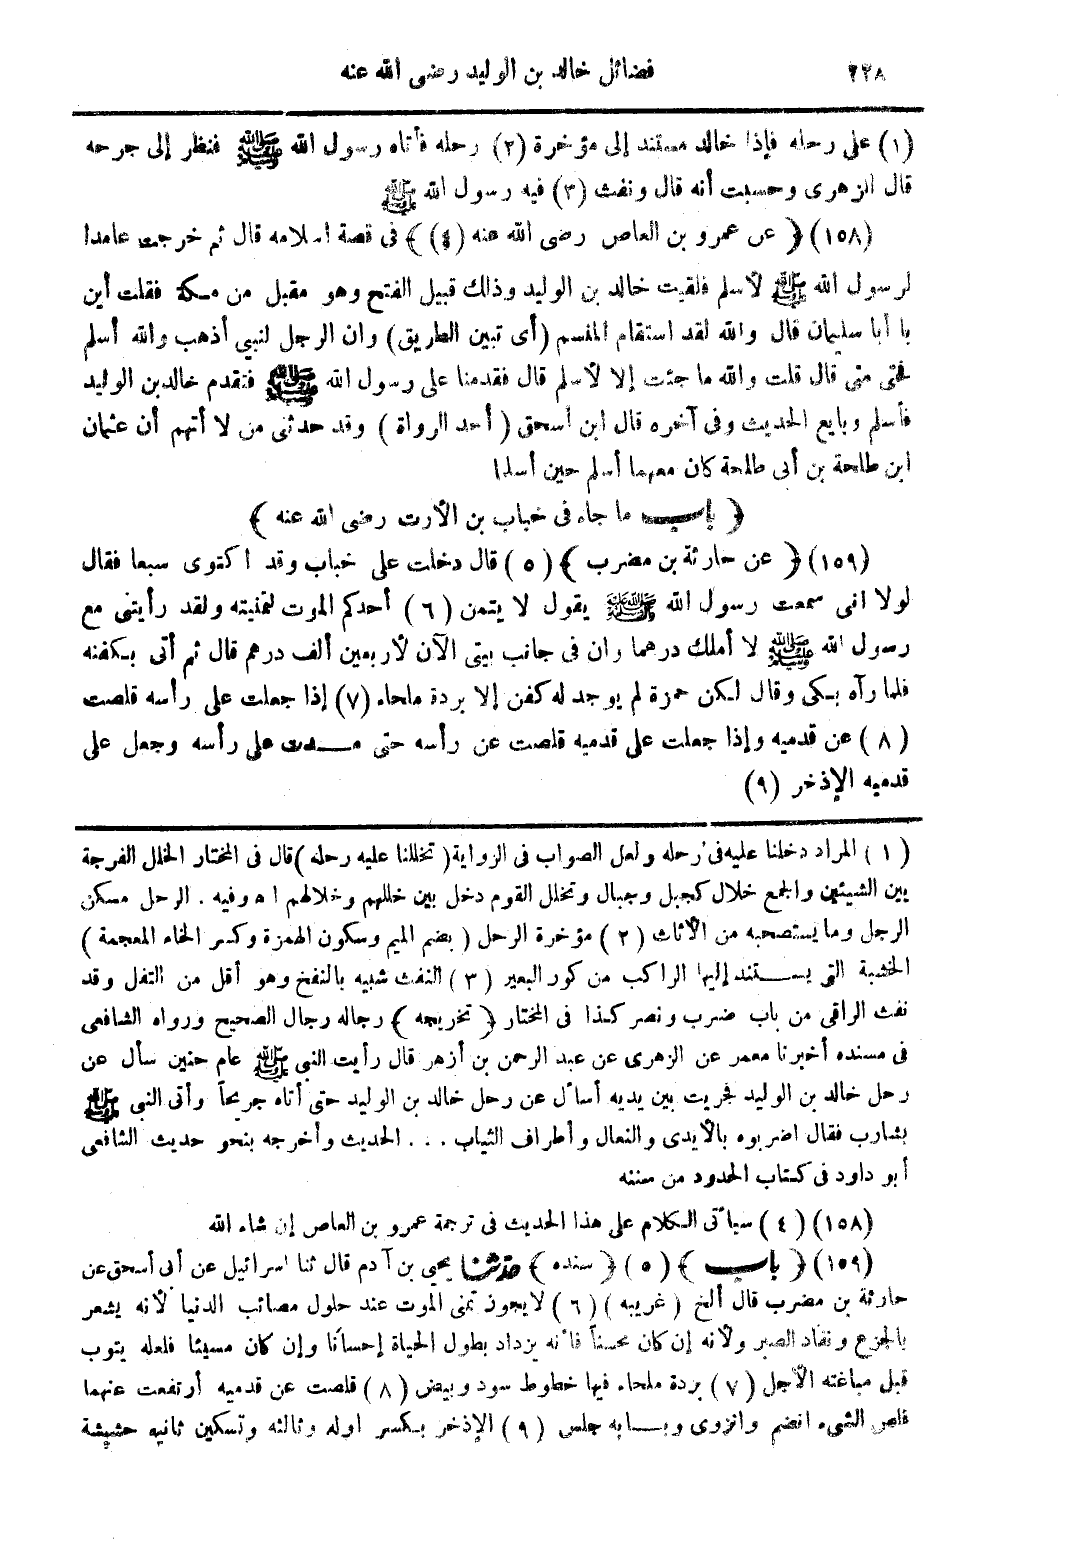 ٢٢٨ فضائل خالد بن الوليد رضى الله عنه
(١) على رحله فإذا خالد مستند إلى مؤخرة (٢) رحله فأتاه رسول الله ﷺ فنظر إلى جرحه
قال الزهرى وحسبت أنه قال ونفث (٣) فيه رسول الله ﷺ
(١٥٨) ﴿ عن عمرو بن العاص رضى الله عنه (٤) ﴾ فى قصة اسلامه قال ثم خرجت عامدا
لرسول الله ﷺ لأسلم فلقيت خالد بن الوليد وذلك قبيل الفتح وهو مقبل من مكة فقلت أين
يا أبا سليمان قال والله لقد استقام المنسم (أى تبين الطريق) وان الرجل لنبي أذهب والله أسلم
فحتى متى قال قلت والله ما جئت إلا لأسلم قال فقدمنا على رسول الله ﷺ فتقدم خالد بن الوليد
فأسلم وبايع الحديث وفى آخره قال ابن أسحق ( أحد الرواة ) وقد حدثنى من لا أتهم أن عثمان
ابن طلحة بن أبى طلحة كان معهما أسلم حين أسلما
﴿ باب ما جاء فى خباب بن الأرت رضى الله عنه ﴾
(١٥٩) ﴿ عن حارثة بن مضرب ﴾ (٥) قال دخلت على خباب وقد اكتوى سبعا فقال
لولا انى سمعت رسول الله ﷺ يقول لا يتمن (٦) أحدكم الموت لتمنيته ولقد رأيتنى مع
رسول الله ﷺ لا أملك درهما وان فى جانب بيتى الآن لأربعين ألف درهم قال ثم أتى بكفنه
فلما رآه بكى وقال لكن حمزة لم يوجد له كفن إلا بردة ملحاء (٧) إذا جعلت على رأسه قلصت
(٨) عن قدميه وإذا جعلت على قدميه قلصت عن رأسه حتى مدت على رأسه وجعل على
قدميه الإذخر (٩)
(١) المراد دخلنا عليه فى رحله ولعل الصواب فى الرواية ( تخللنا عليه رحله ) قال فى المختار الخلل الفرجة
بين الشيئين والجمع خلال كجبل وجبال وتخلل القوم دخل بين خللهم وخلالهم اه وفيه . الرحل مسكن
الرجل وما يستصحبه من الأثاث (٢) مؤخرة الرحل ( بضم الميم وسكون الهمزة وكسر الخاء المعجمة )
الخشبة التى يستند إليها الراكب من كور البعير (٣) النفث شبيه بالنفخ وهو أقل من التفل وقد
نفث الراقى من باب ضرب ونصر كذا فى المختار ﴿ تخريجه ﴾ رجاله رجال الصحيح ورواه الشافعى
فى مسنده أخبرنا معمر عن الزهرى عن عبد الرحمن بن أزهر قال رأيت النبى ﷺ عام حنين سأل عن
رحل خالد بن الوليد فجريت بين يديه أسأل عن رحل خالد بن الوليد حتى أتاه جريحاً وأتى النبى ﷺ
بشارب فقال اضربوه بالأيدى والنعال وأطراف الثياب . . . الحديث وأخرجه بنحو حديث الشافعى
أبو داود فى كتاب الحدود من سننه
(١٥٨) (٤) سيأتى الكلام على هذا الحديث فى ترجمة عمرو بن العاص إن شاء الله
(١٥٩) ﴿ باب ﴾ (٥) ﴿ سنده ﴾ حدثنا يحيى بن آدم قال ثنا اسرائيل عن أبى أسحق عن
حارثة بن مضرب قال ألخ ( غريبه ) (٦) لا يجوز تمنى الموت عند حلول مصائب الدنيا لأنه يشعر
بالجزع ونفاد الصبر ولأنه إن كان محسناً فأنه يزداد بطول الحياة إحسانا وإن كان مسيئا فلعله يتوب
قبل مباغته الأجل (٧) بردة ملحاء فيها خطوط سود وبيض (٨) قلصت عن قدميه أرتفعت عنهما
قلص الشىء انضم وانزوى وبابه جلس (٩) الإذخر بكسر اوله وثالثه وتسكين ثانيه حشيشة